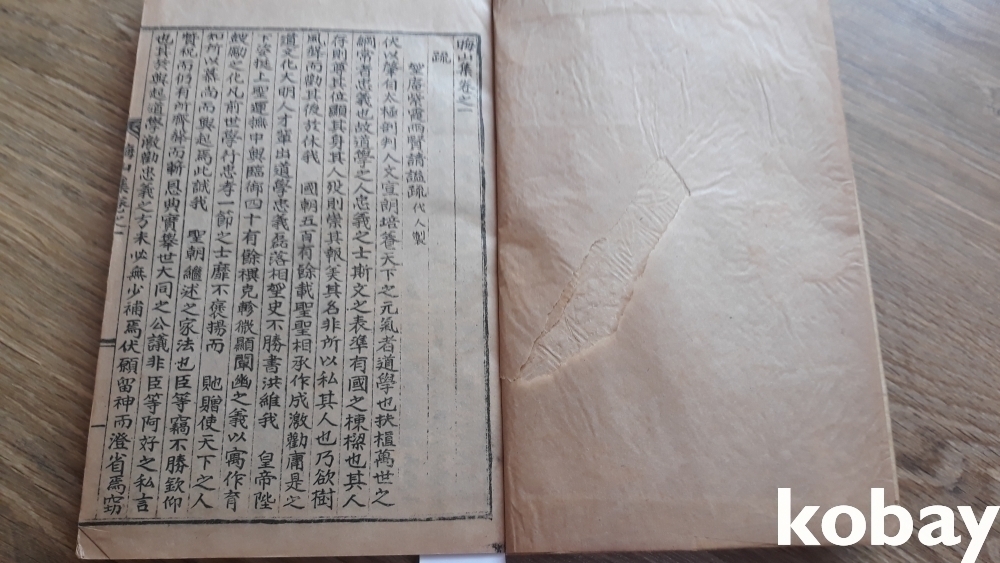 晦山集卷之一
疏
聖居紫霞兩賢請諡疏 代人製
伏以肇自太極剖判人文宣朗培養天下之元氣者道學也扶植萬世之
綱常者忠義也故道學之人忠義之士斯文之表準有國之棟樑也其人
存則尊其位顯其身其人歿則崇其報美其名非所以私其人也乃欲樹
風聲而勸其後於休我 國朝五百有餘載聖聖相承作成激勸庸是之
道文化大明人才輩出道學忠義磊落相望史不勝書洪維我 皇帝陛
下姿挺上聖運撫中興臨御四十有餘禩克軫微顯闡幽之義以寓作育
聳勵之化凡前世學行忠孝一節之士靡不褒揚而 貤贈使天下之人
知所以慕尚而興起焉此誠我 聖朝繼述之家法也臣等竊不勝欽仰
贊祝而仍有所齊籲而蘄恩典實擧世大同之公議非臣等阿好之私言
也其於興起道學激勸忠義之方未必無少補焉伏願留神而澄省焉窃
晦山集卷之一
kobay